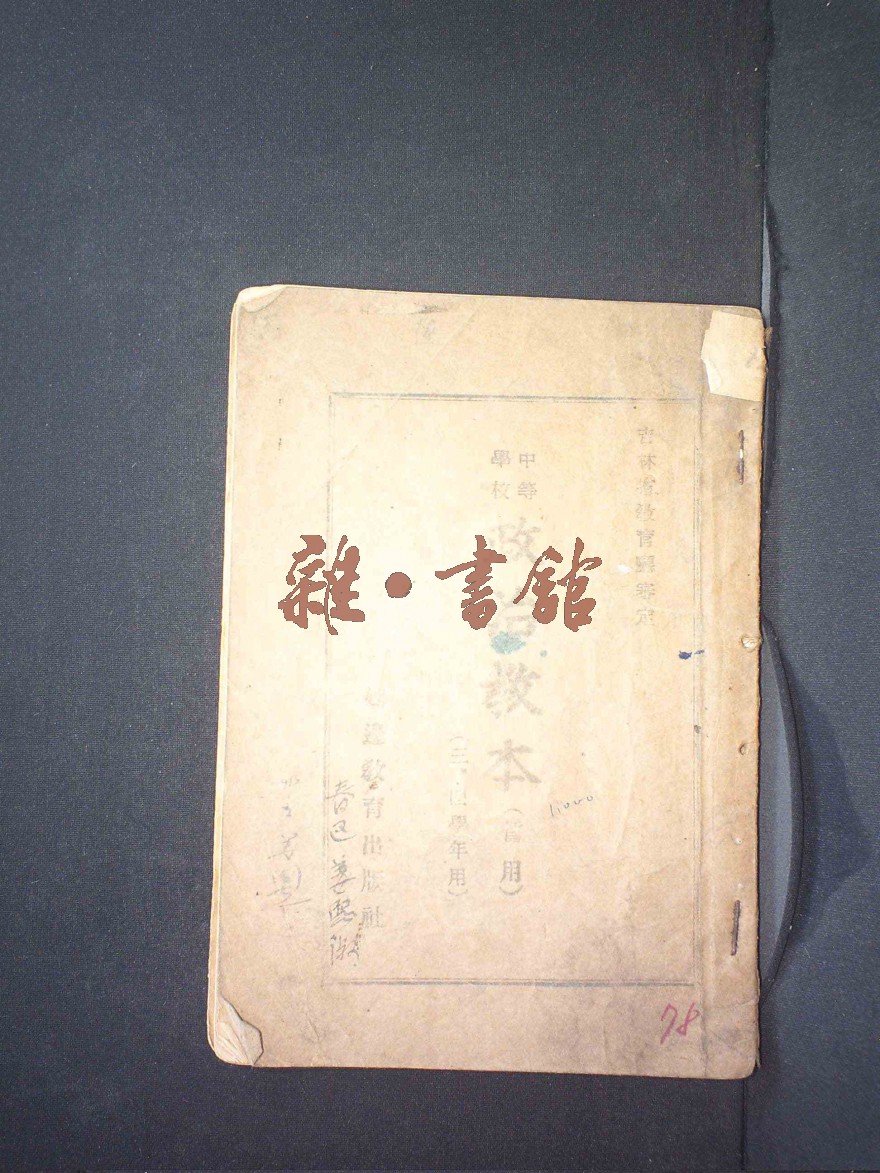 吉林省教育廳審定
中等
學校
政治教本
(暫用)
(三、四學年用)
延邊教育出版社
11000
78
雜·書館